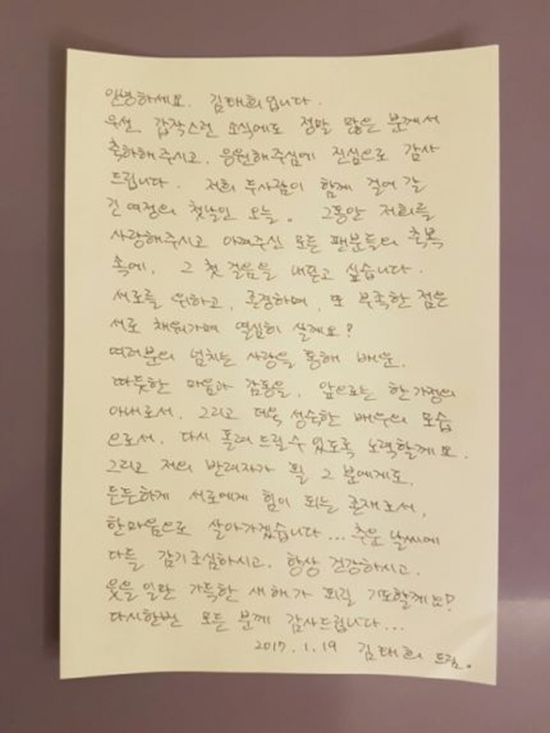 안녕하세요. 김태희입니다.
우선, 갑작스런 소식에도 정말 많은 분께서
축하해주시고, 응원해주심에 진심으로 감사
드립니다. 저희 두사람이 함께 걸어 갈
긴 여정의 첫날인 오늘. 그동안 저희를
사랑해주시고 아껴주신 모든 팬분들의 축복
속에, 그 첫 걸음을 내딛고 싶습니다.
서로를 위하고, 존경하며, 또 부족한 점은
서로 채워가며 열심히 살께요?
여러분의 넘치는 사랑을 통해 배운,
따듯한 마음과 감동을, 앞으로는 한 가정의
아내로서, 그리고 더욱 성숙한 배우의 모습
으로서, 다시 돌려 드릴 수 있도록 노력할께요.
그리고 저의 반려자가 될 그 분에게도,
든든하게 서로에게 힘이 되는 존재로서,
한마음으로 살아가겠습니다... 추운 날씨에
다들 감기 조심하시고, 항상 건강하시고,
웃을 일만 가득한 새해가 되길 기도할께요?
다시한번 모든 분께 감사드립니다...
2017. 1. 19 김태희 드림.